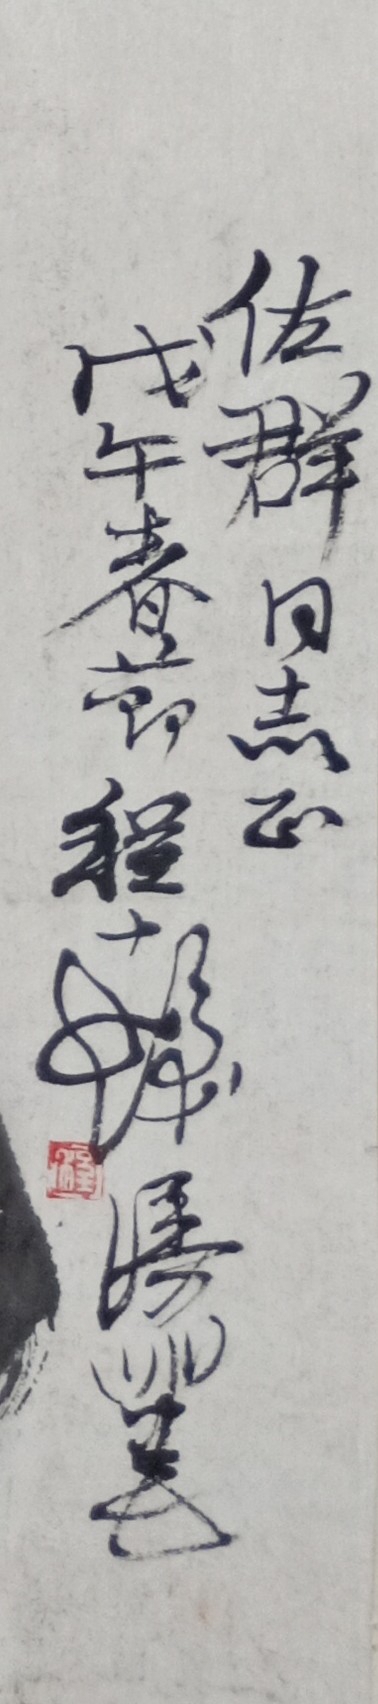 佑群同志正
戊午春节程十发漫笔
程